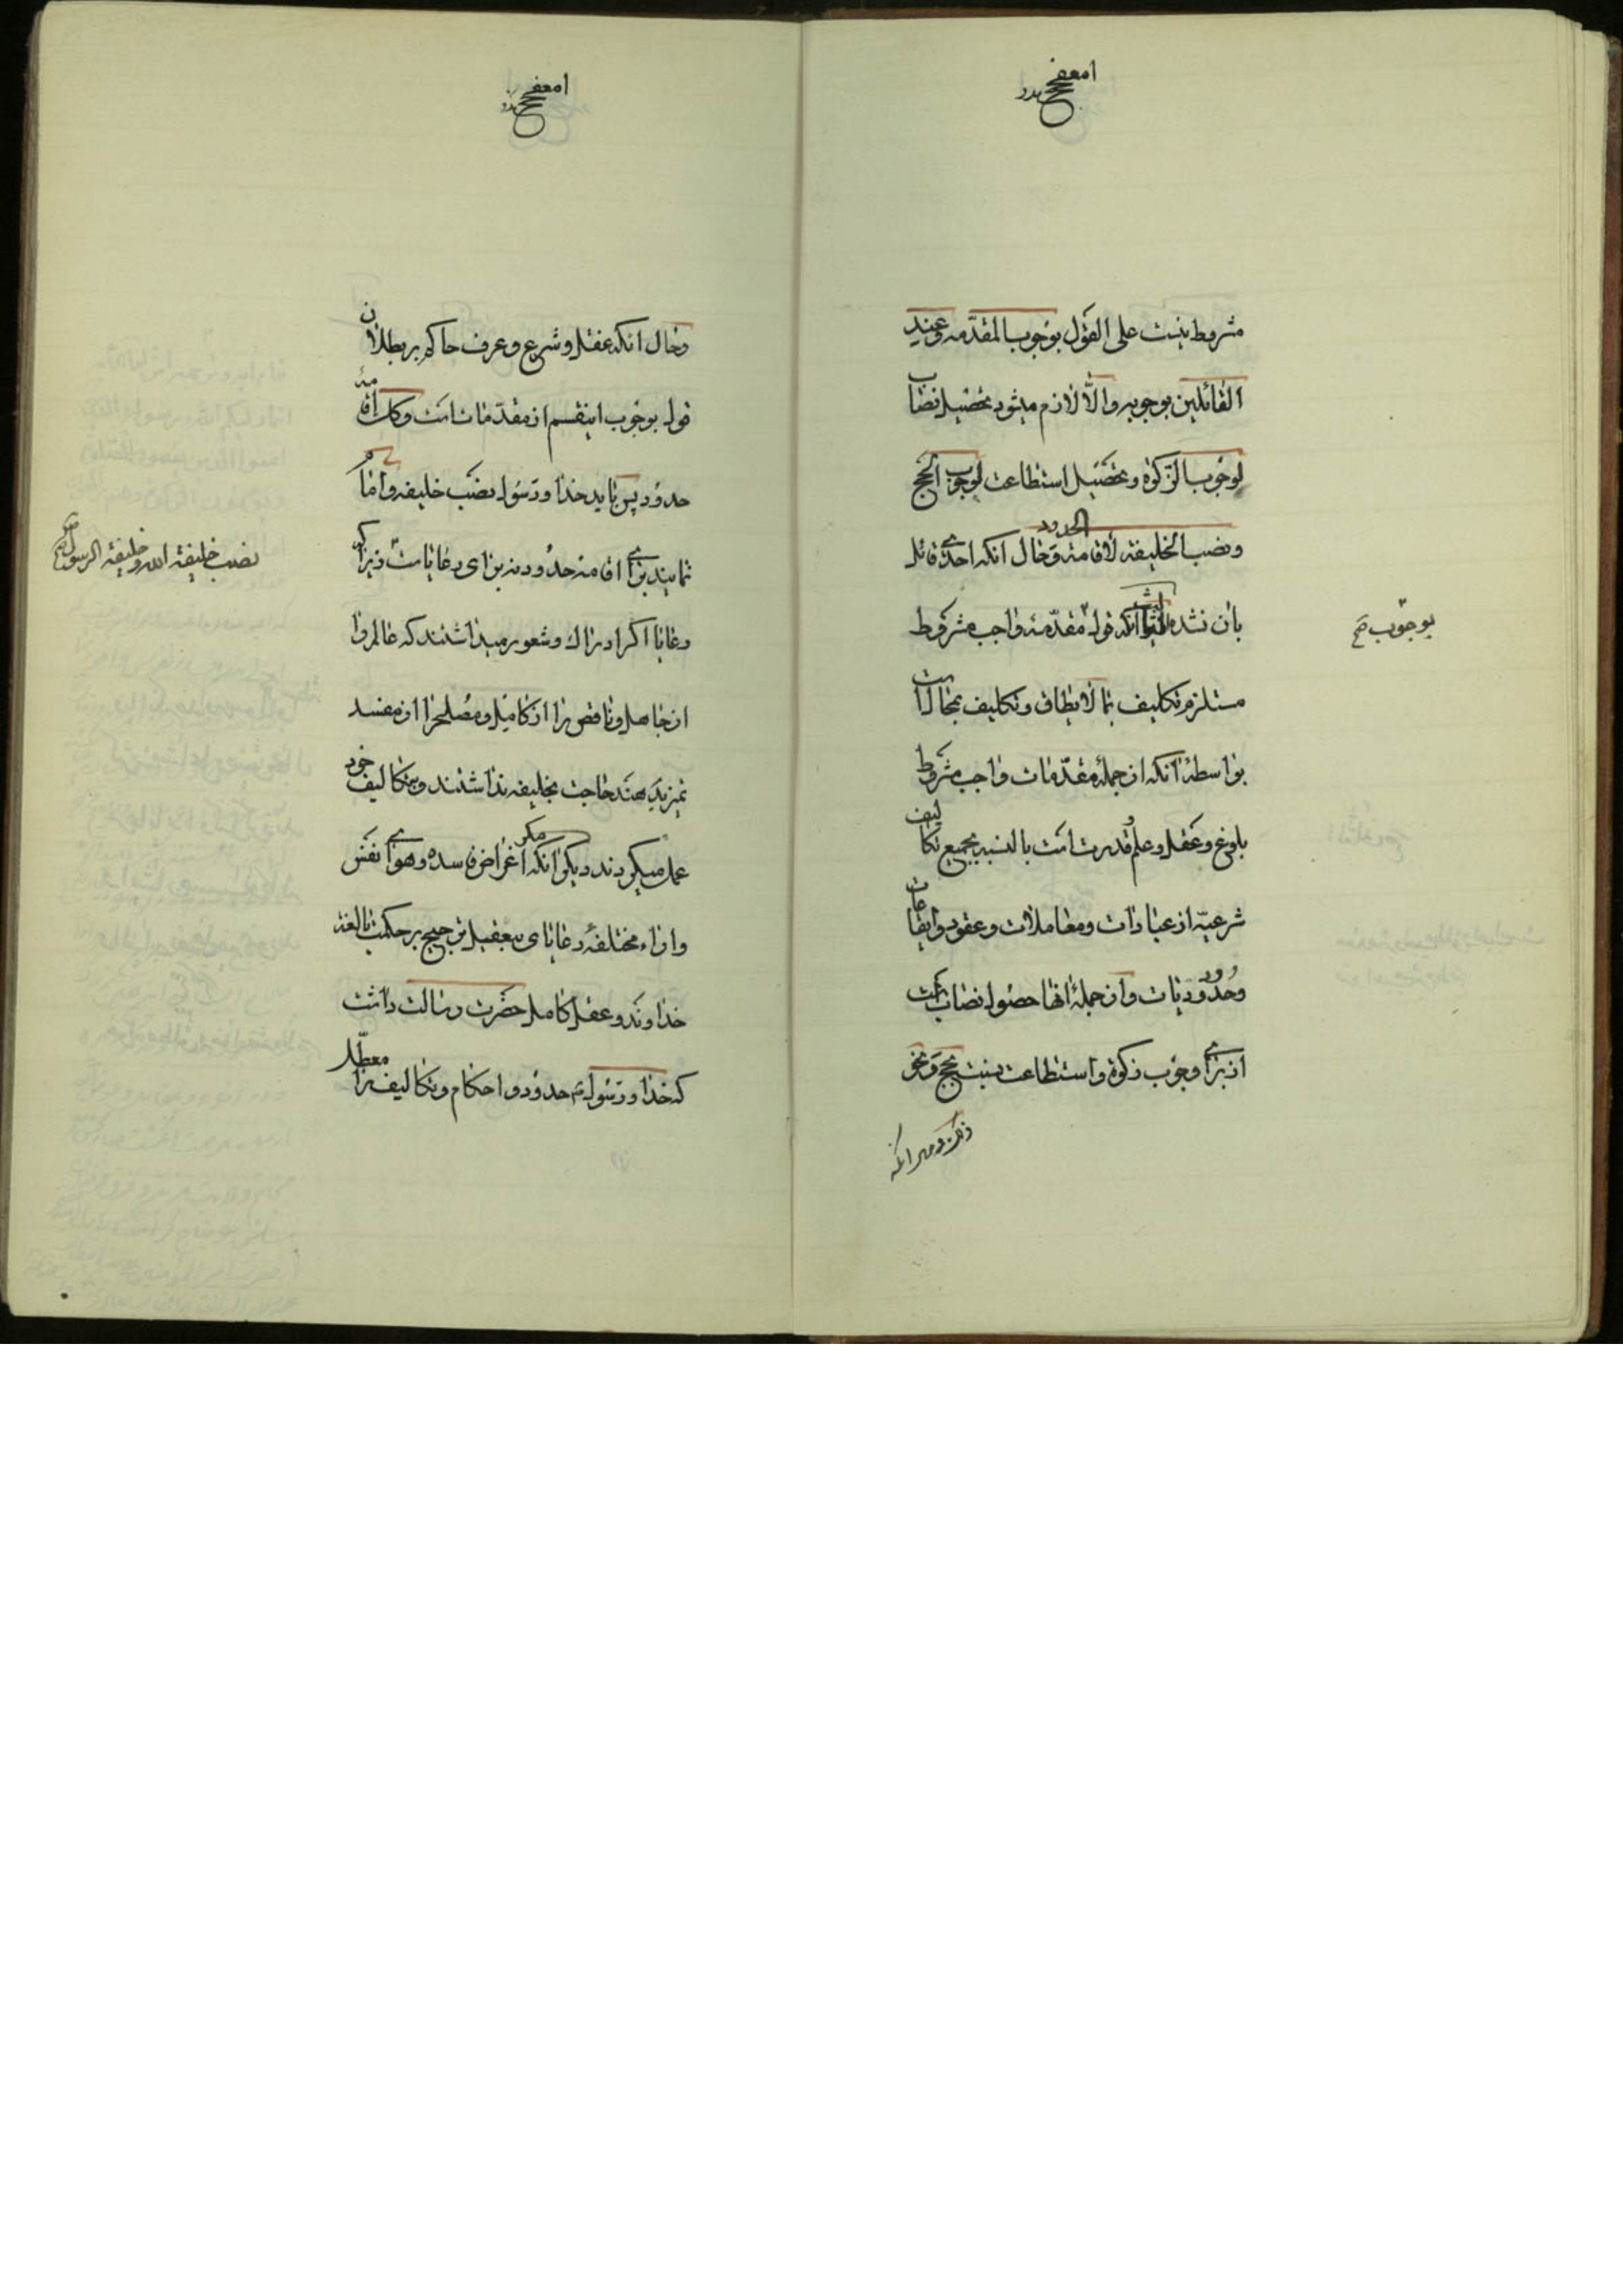 مشروط نیست علی القول بوجوب المقدّمه وعند
القائلین بوجوبه والّا لازم میشود تحصیل نصاب
لوجوب الزکوة وتحصیل استطاعت لوجوب الحج
ونصب الخلیفه لاقامة الحدود وحال انکه احدی قائل
بان نشده ثالثا انکه قول مقدّمه واجب مشروط
بوجوب صح
مستلزم تکلیف بما لایطاق وتکلیف بمحالات
بواسطهٔ انکه از جملهٔ مقدّمات واجب مشروط
بلوغ وعقل وعلم وقدرت است بالنسبه بجمیع تکالیف
شرعیّه از عبادات ومعاملات وعقود وایقاعات
وحدود ودیات واز جملهٔ انها حصول نصاب است
از برای وجوب زکوة واستطاعت نسبت بحج ونحو
وحال انکه عقل وشرع وعرف حاکم بر بطلان
قول بوجوب اینقسم از مقدّمات است وکذا اقامهٔ
حدود پس باید خدا ورسول نصب خلیفه واماما
نصب خلیفة الله وخلیفة الرسول صح
نمایند برای اقامه حدود نه برای رعایات زیرا که
رعایا اکر ادراک وشعور میداشتند که عالم را
از جاهل وناقص را از کامل ومصلح را از مفسد
تمیز بدهند حاجت بخلیفه نداشتند وبتکالیف خود
عمل میکردند دیکر انکه مکر اغراض فاسده وهوای نفس
واراء مختلفهٔ رعایای بیعقل ترجیح بر حکمت بالغه
خداوند وعقل کامل حضرت رسالت داشت
که خدا ورسول حدود واحکام وتکالیف را معطّل